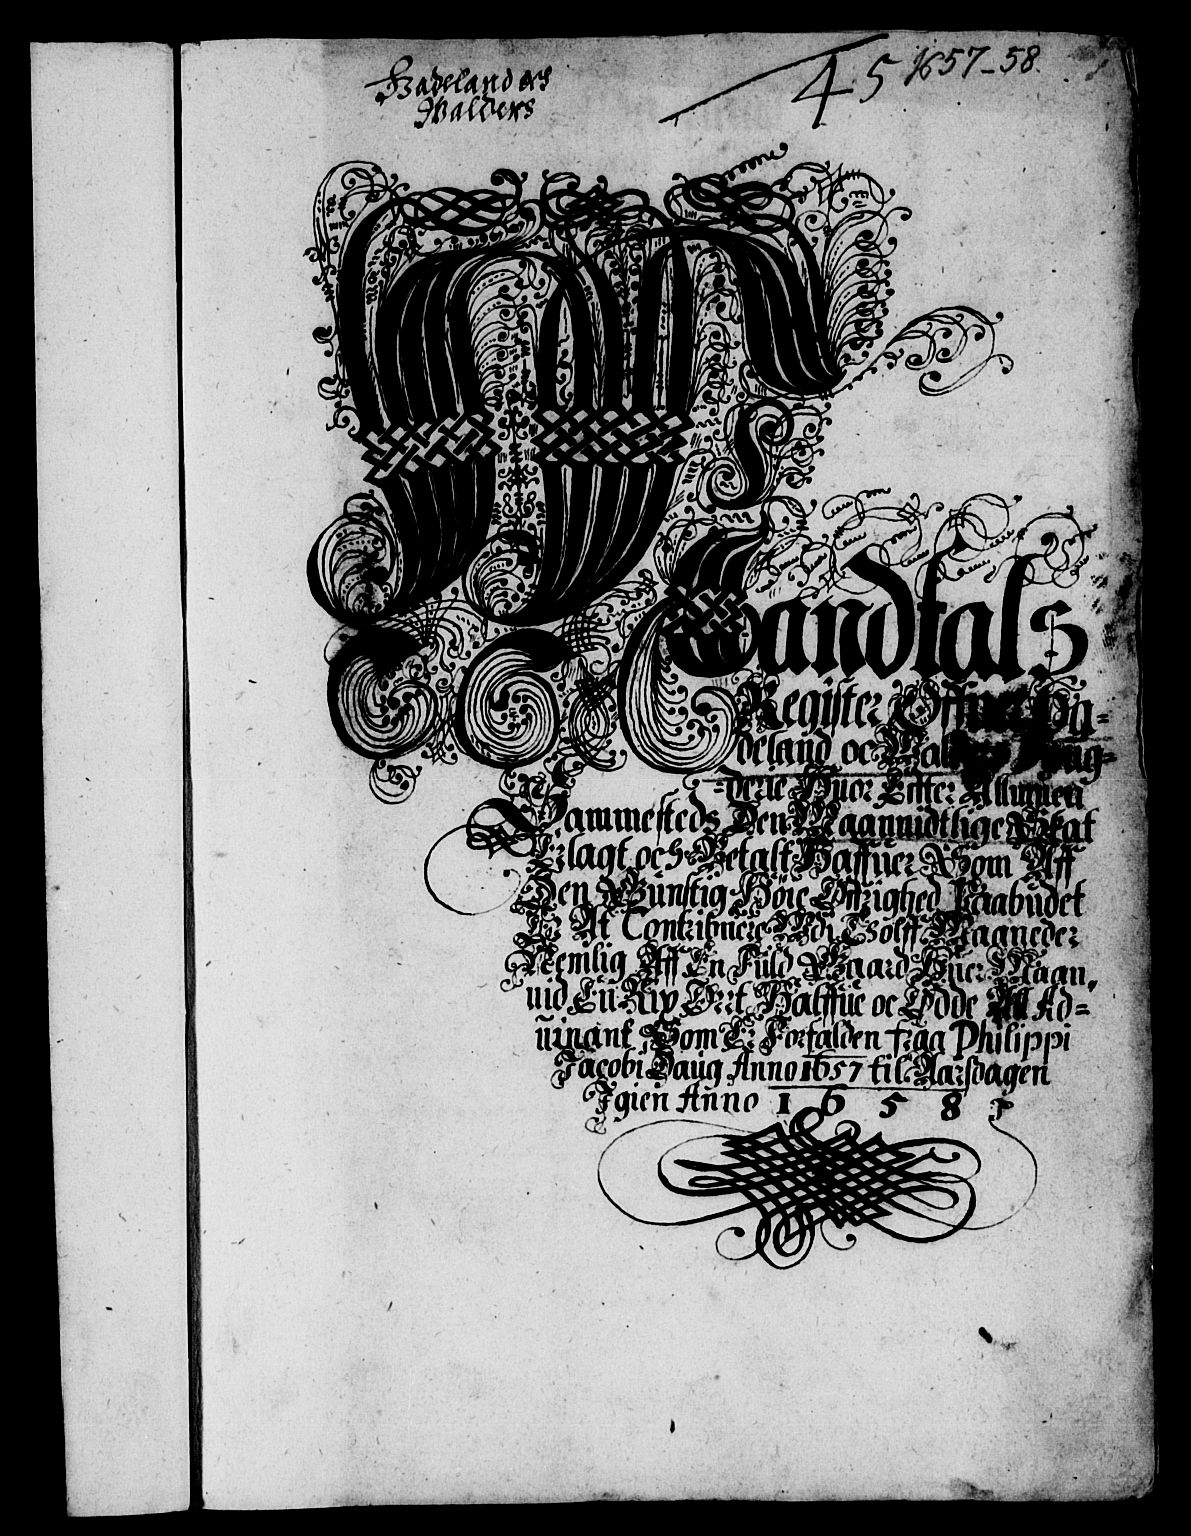 Hadeland och
Walders
45 1657-58.
Mandtals
Register Offuer Ha=
deland oc Walders Foug=
=derie Huor Effter Allmuen
Sammesteds Den Maanndtlige Skat
Erlagt och Betalt Haffuer Som Aff
Den Gunstig Høie Øffrighed Paabudet
Er At Contribuere Udi Tolff Maaneder
Nemlig Aff En Fuld Gaard Huer Maan,
uid En Rix Ort Halffue oc Ødde All Ad=
uinant Som Er Forfalden fraa Philippi
Jacobi Daug Anno 1657 til Aarsdagen
Igien Anno 1658